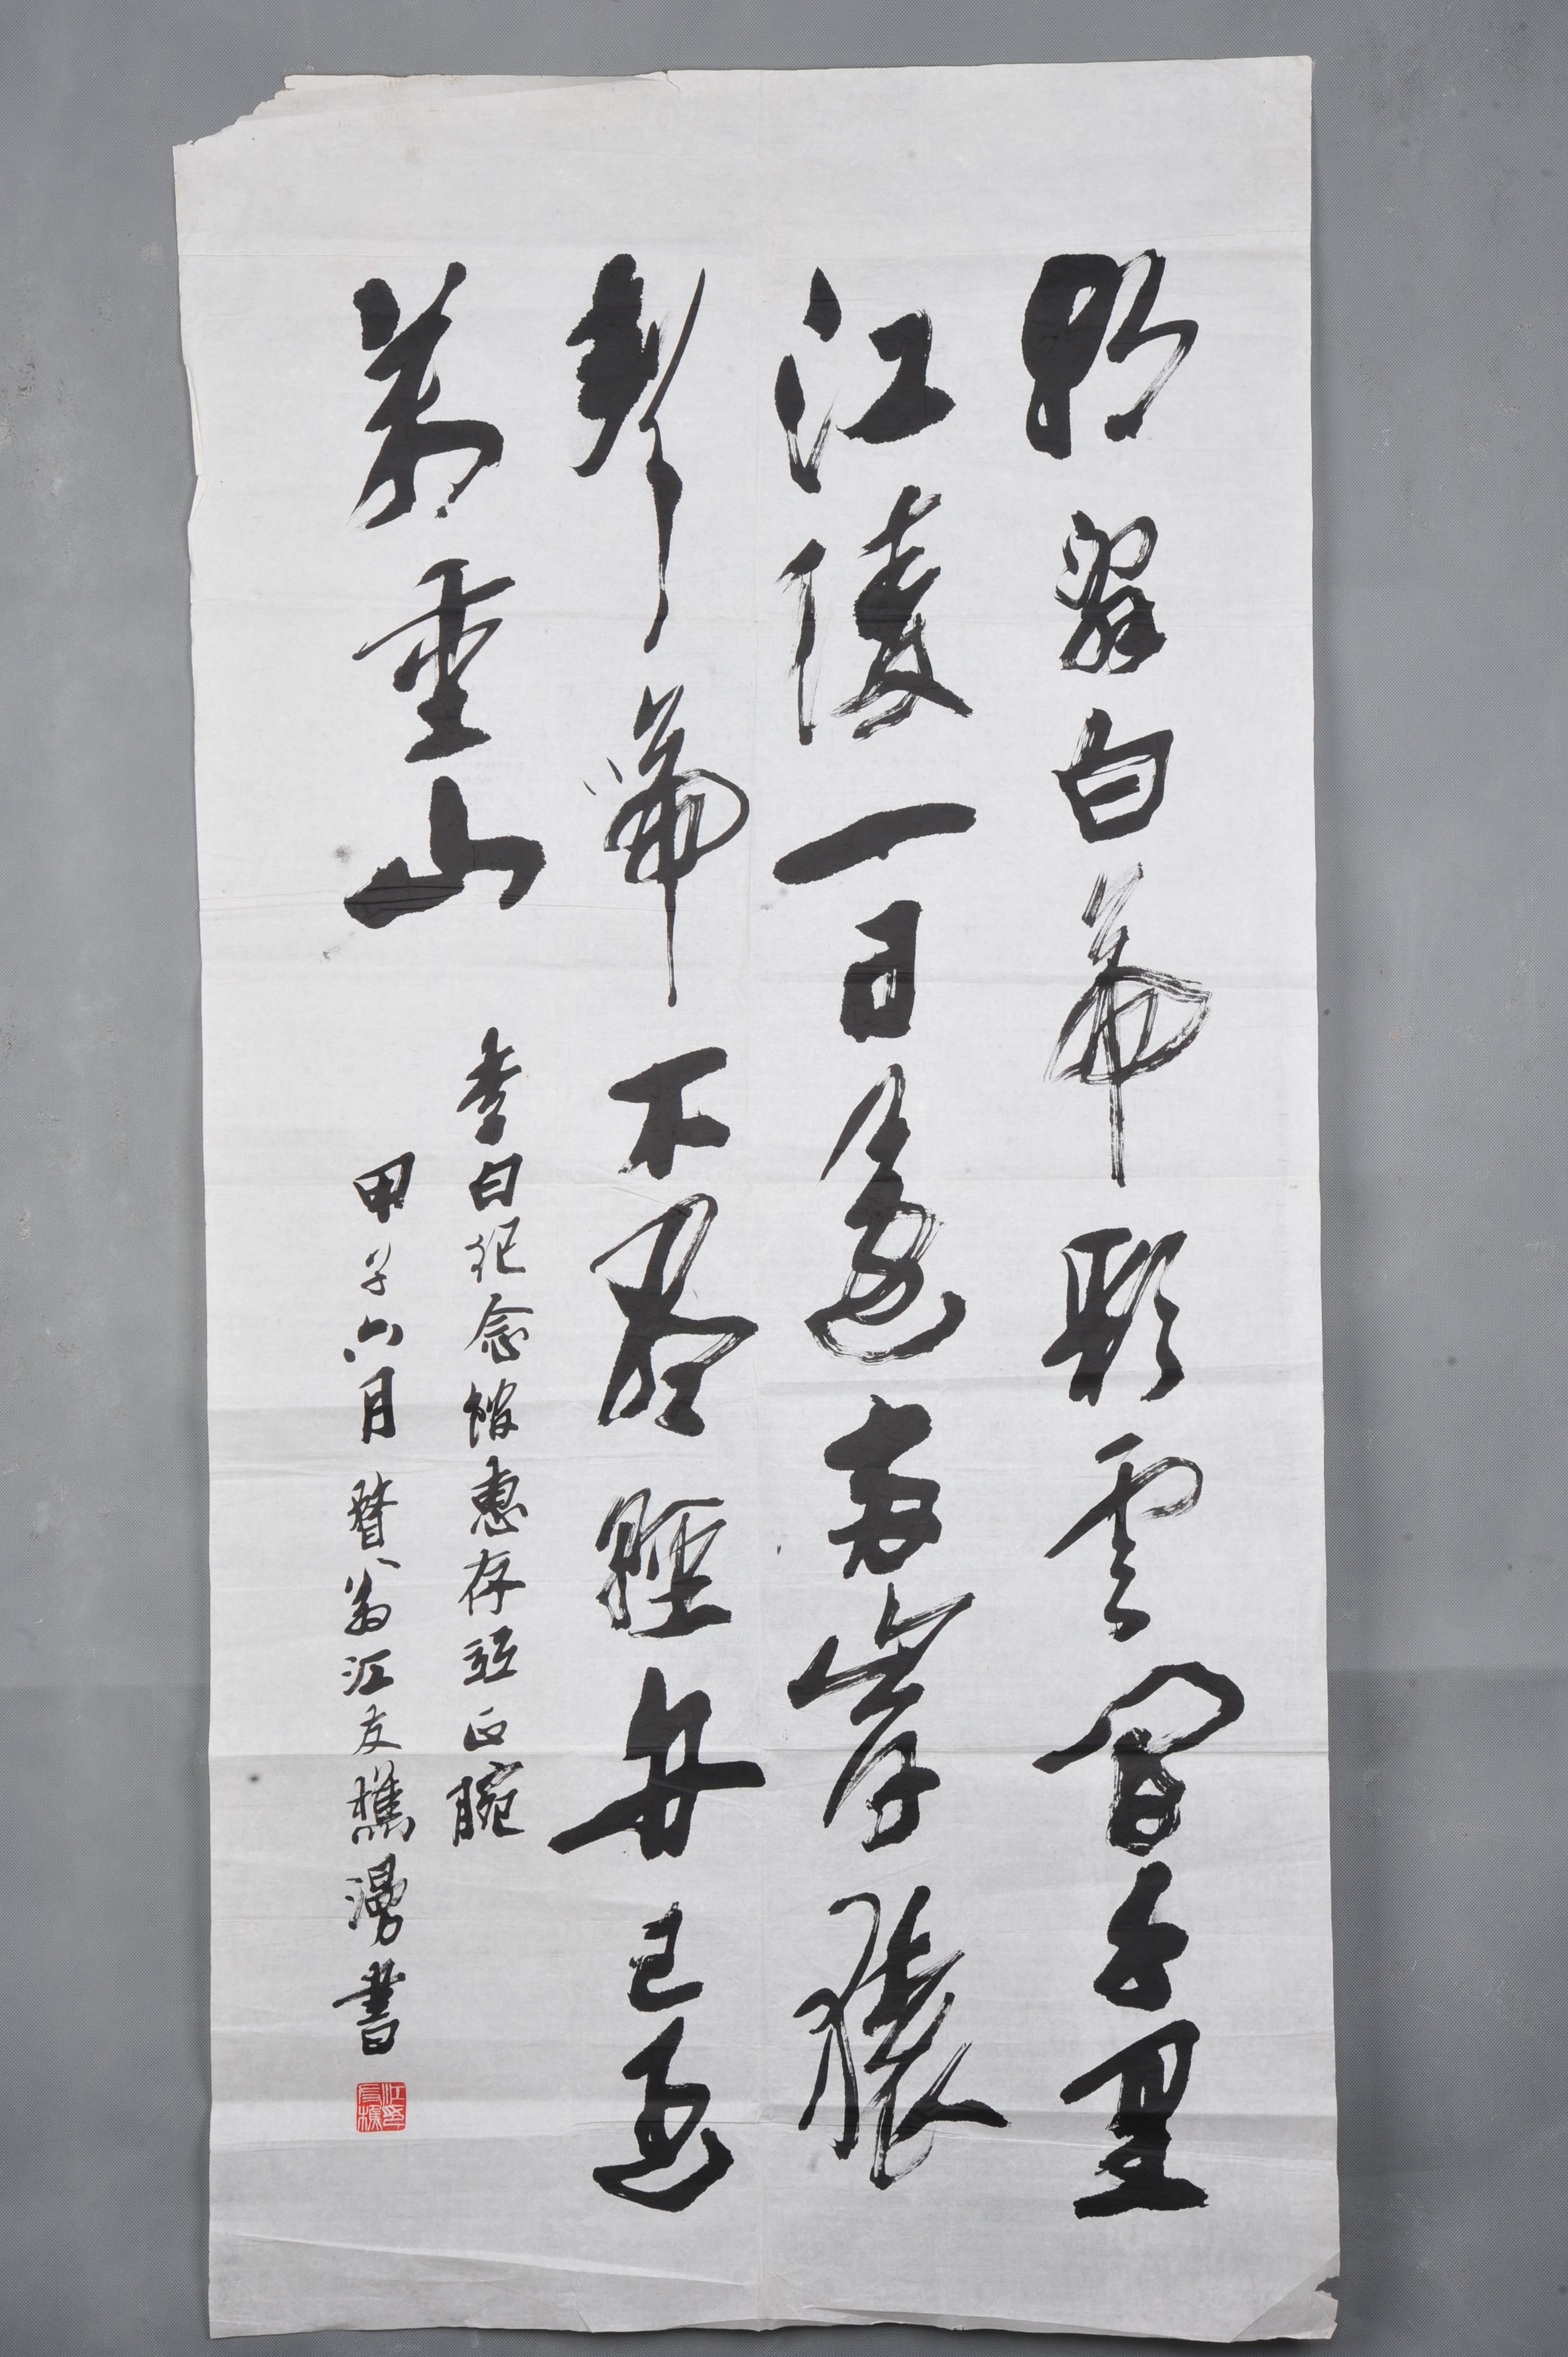 朝辭白帝彩雲間千里
江陵一日還兩岸猿
聲啼不盡輕舟已過
萬重山
李白纪念馆惠存並正腕
甲子六月瞀翁江友樵漫書
江友樵印